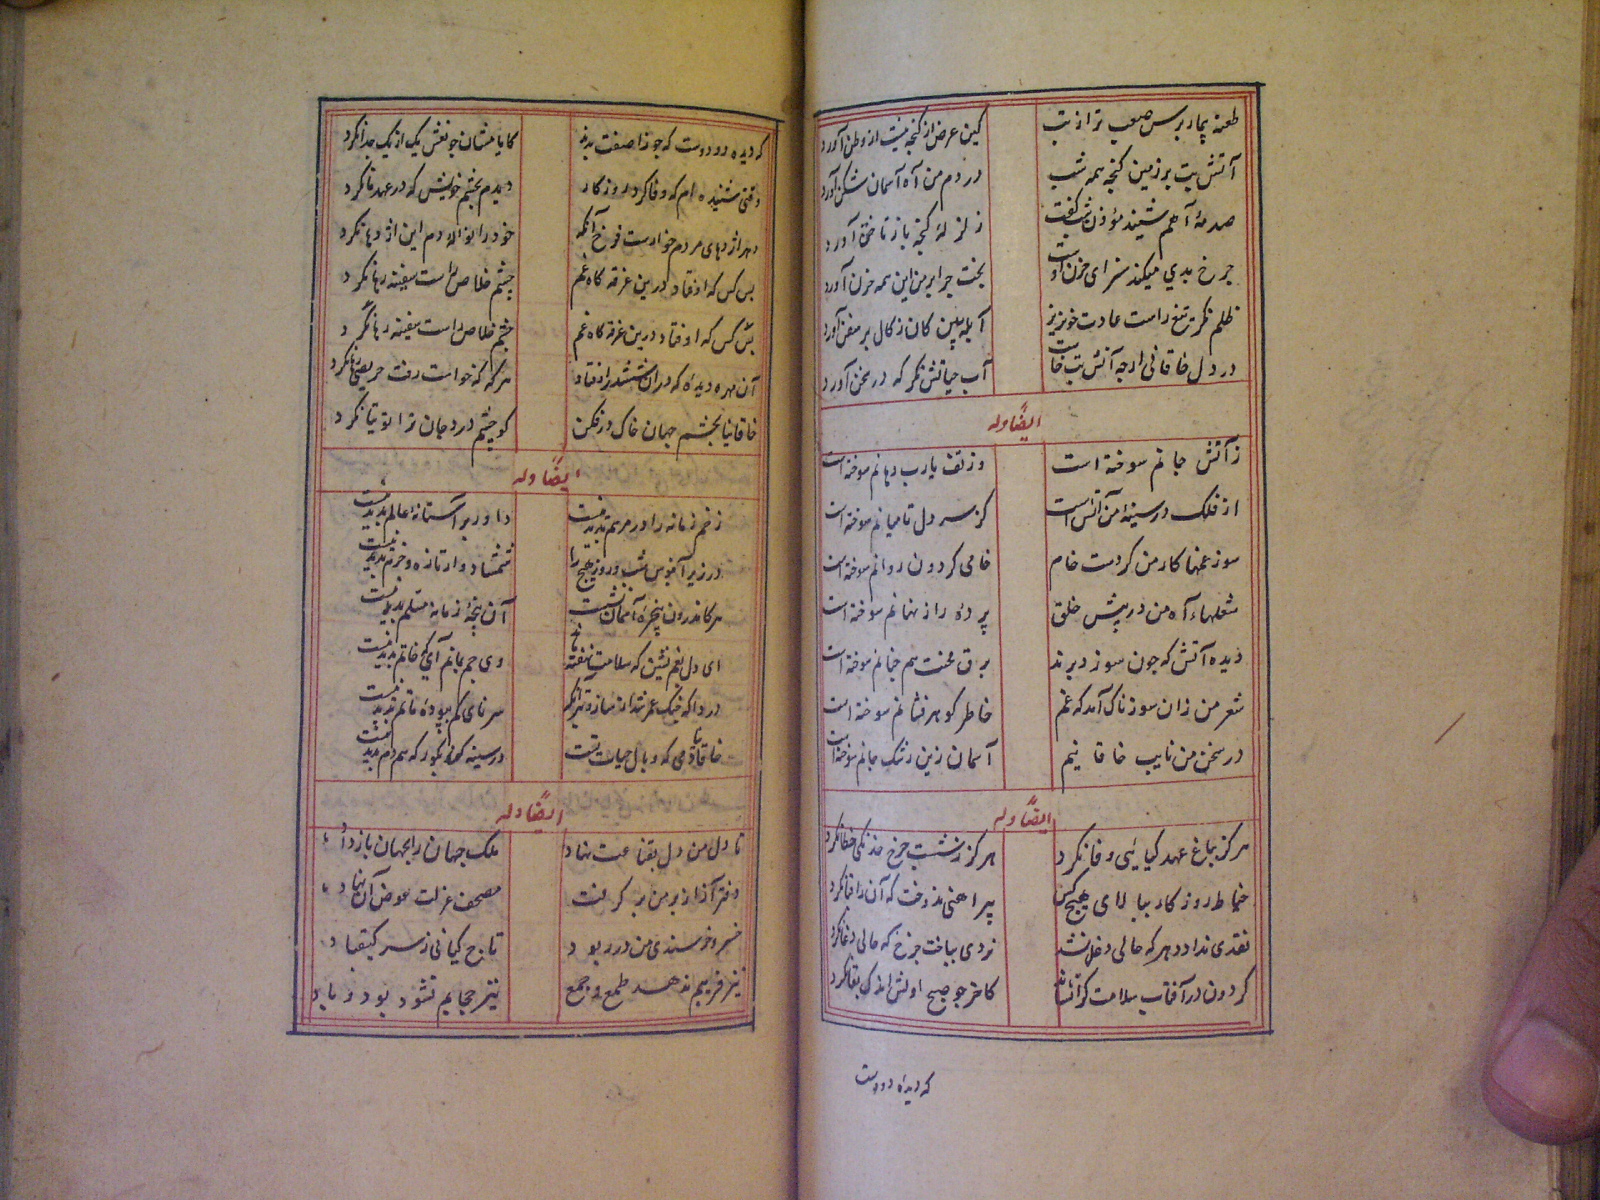 طعنه بیمار پرس صعب تر از تب کین عرض از گنجه نیست از وطن آورد
آتش تب بر زمین گنجه همه شب در دم من آه آسمان شکن آورد
صدمهٔ آهم شنید مؤذن شب گفت زلزلهٔ گنجه باز تاختن آورد
چرخ بدی میکند سزای حزن اوست بخت چرا بر من این همه حزن آورد
ظلم نگر تیغ راست عادت خونریز آبله بین کان نکال بر سفن آورد
در دل خاقانی ارچه آتش تب خاست آب حیاتش نگر که در سخن آورد
ایضاً وله
ز آتش جانم سوخته است وز تف یارب دهانم سوخته است
از فلک در سینهٔ من آتش است کز سر دل تا میانم سوخته است
سوز غمها کار من کردست خام خامی گردون روانم سوخته است
شعلهاء آه من در پیش خلق پردهٔ راز نهانم سوخته است
دیده آتش که چون سوزد پرند برق محنت همچنانم سوخته است
شعر من زان سوزناک آمد که غم خاطر گوهرفشانم سوخته است
در سخن من نایب خاقانیم آسمان زین رشک جانم سوخته است
ایضاً وله
هرگز بباغ عهد گیائی وفا نکرد هرگز ز شست چرخ خدنگی خطا نکرد
خیاط روزگار ببالای هیچ کس پیراهنی ندوخت که آن را قبا نکرد
نقدی نداد دهر که حالی دغل نشد نردی نباخت چرخ که حالی دغا نکرد
گردون در آفتاب سلامت کرا نشاند کاخر چو صبح اولش اندک بقا نکرد
که دیده دو دوست
که دیده دو دوست که جوزا صفت بدند کایامشان چو نعش یک از یک جدا نکرد
وقتی شنیده ام که وفا کرد روزگار دیدم بچشم خویش که در عهد ما نکرد
دهر اژدهای مردم خوارست فرخ آنکه خود را نوالهٔ دم این اژدها نکرد
بس کس که اوفتاد درین غرقه گاه غم چشم خلاص داشت سفینه رها نکرد
بس کس که اوفتاد درین غرقه گاه غم چشم خلاص داشت سفینه رها نکرد
آن مهره دیدهٔ که در آن ششدر اوفتاد هرگه که خواست رفت حریفش رها نکرد
خاقانیا بچشم جهان خاک در فکن کو چشم درد جان ترا توتیا نکرد
ایضاً وله
زخم زمانه را در مرهم پدید نیست داور بر آستانهٔ عالم پدید نیست
در زیر آبنوس شب و روز هیچ را شمشادوار تازه و خرم پدید نیست
هر کاندرون پنجرهٔ آسمان نشست آن پنجهٔ زمانه مسلم پدید نیست
ای دل بغم نشین که سلامت نهفته ماند وی جم بماتم آی که خاتم پدید نیست
دردا که چنگ عمر شد از ساز بتر آنک سرنای گم ببودهٔ ماتم پدید نیست
خاقانیا دمی که وبال حیات تست در سینه کن بگور که همدم پدید نیست
ایضاً وله
تا دل من دل بقناعت نهاد ملک جهان را بجهان باز داد
دفتر آز از بر من برگرفت مصحف عزلت عوض آن نهاد
خسرو خرسندی من در ربود تاج کیانی ز سر کیقباد
نیز فریبم ندهد طمع و جمع نیز حجابم نشود بود و باد